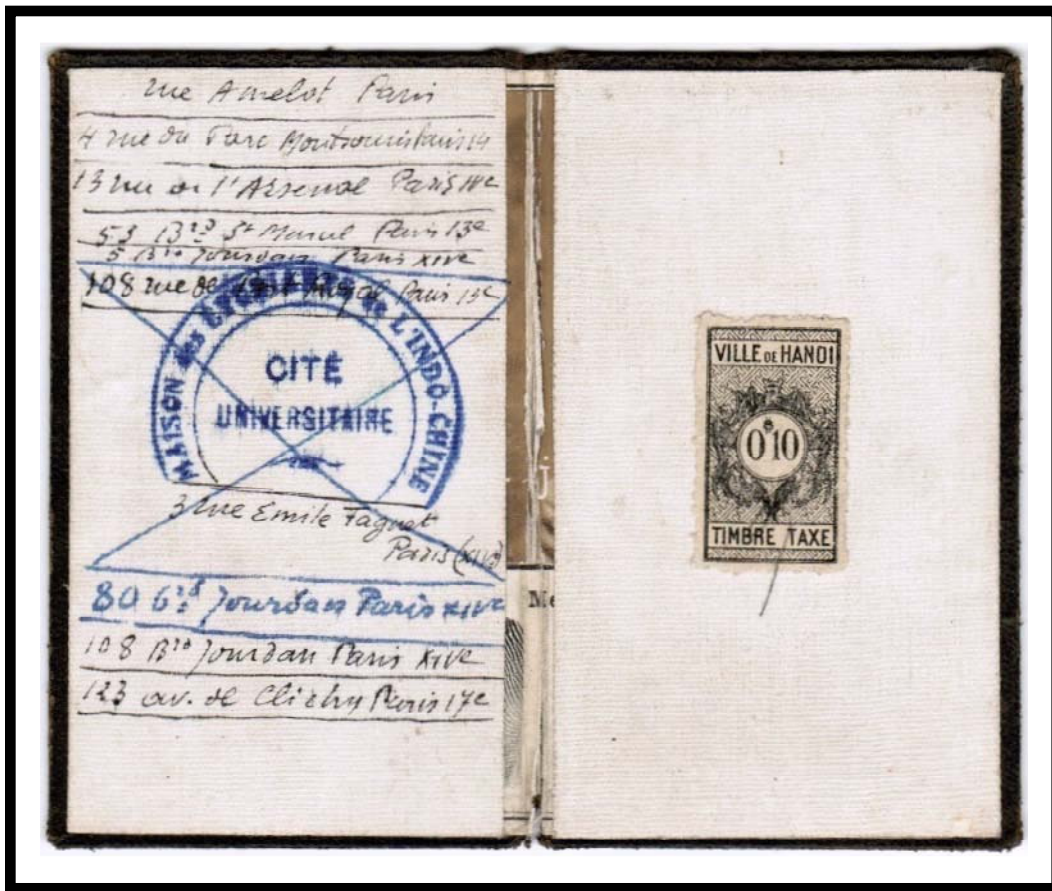 rue Amelot Paris
4 rue du Parc Montsouris Paris 14
13 rue de l'Arsenal Paris
53 Bld St Marcel Paris 13e
5 Bld Jourdan Paris XIVe
108 rue de Port Royal Paris 13e
MAISON des ETUDIANTS de L'INDO-CHINE
CITÉ
UNIVERSITAIRE
3 rue Emile Faguet
Paris (XIVe)
80 Bld Jourdan Paris XIVe
108 Bld Jourdan Paris XIVe
123 av. de Clichy Paris 17e
Me
VILLE DE HANOI
0$10
TIMBRE TAXE